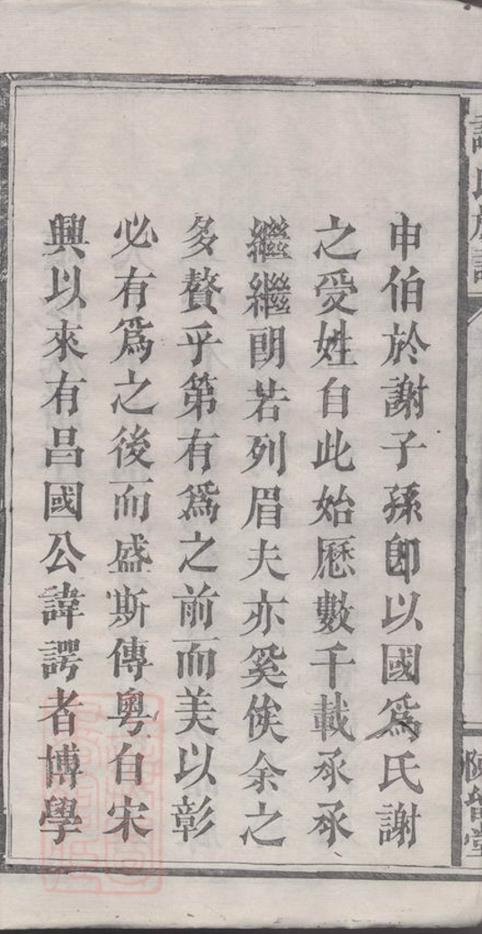 謝氏族譜
申伯於謝子孫卽以國爲氏謝
之受姓自此始歷數千載承承
繼繼朗若列眉夫亦奚俟余之
多贅乎第有爲之前而美以彰
必有爲之後而盛斯傳粵自宋
興以來有昌國公諱諤者博學
陳留堂